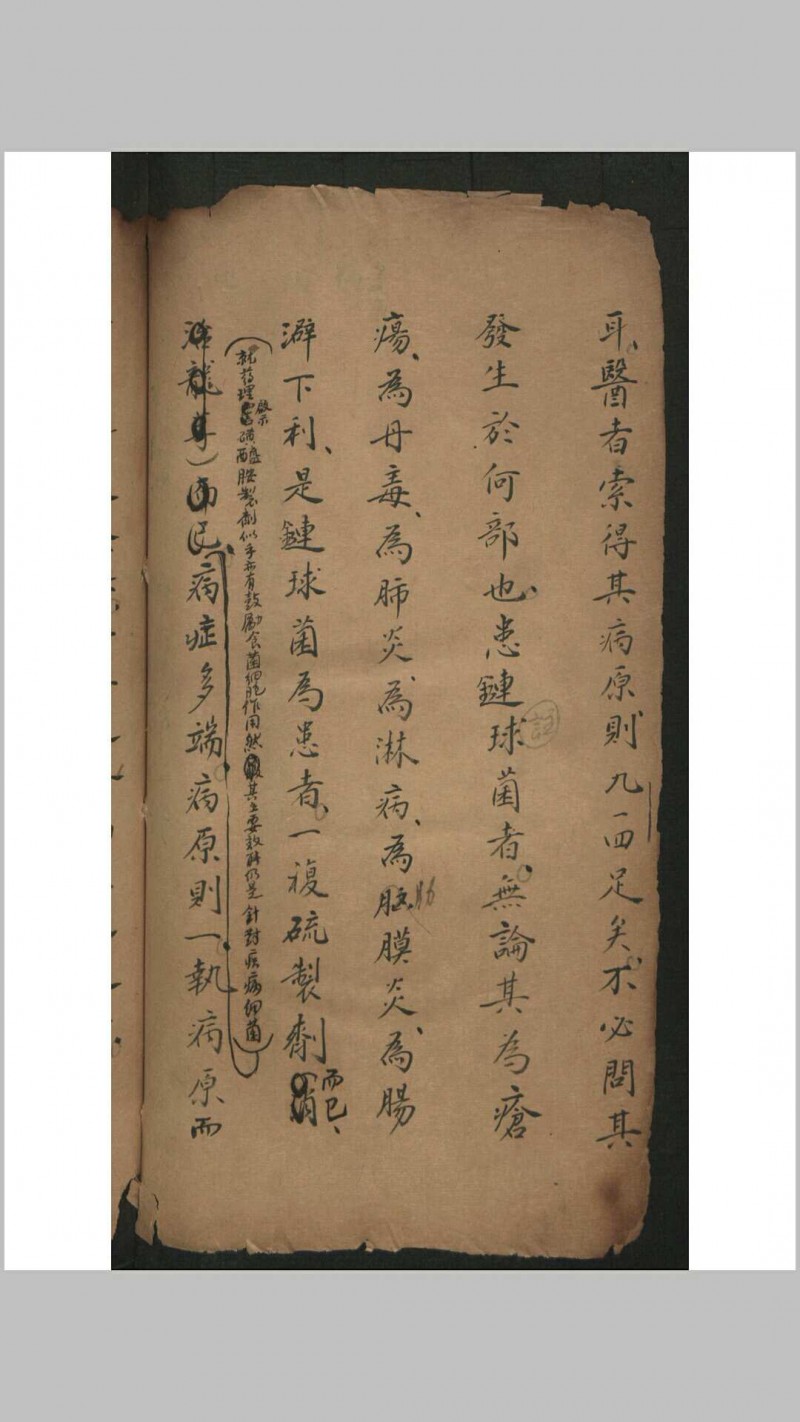 耳、醫者索得其病原、則九一四足矣、不必問其
發生於何部也、患鏈球菌者、無論其為瘡
註
瘍、為丹毒、為肺炎、為淋病、為腦膜炎、為腸
澼下利、是鏈球菌為患者、一複硫製劑
而已、
就藥理
磺醯胺製劑似乎亦有鼓勵食菌細胞作用然其主要效能仍是針對疾病細菌
龍
而已、病症多端病原則一、執病原而